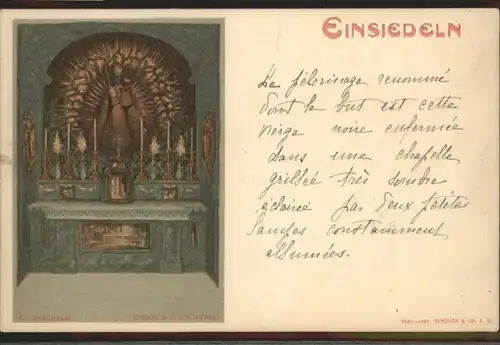 EINSIEDELN
Le pélerinage renommé
dont le but est cette
vierge noire enfermée
dans une chapelle
grillée très sombre
éclairée par deux petites
lampes constamment
allumées.